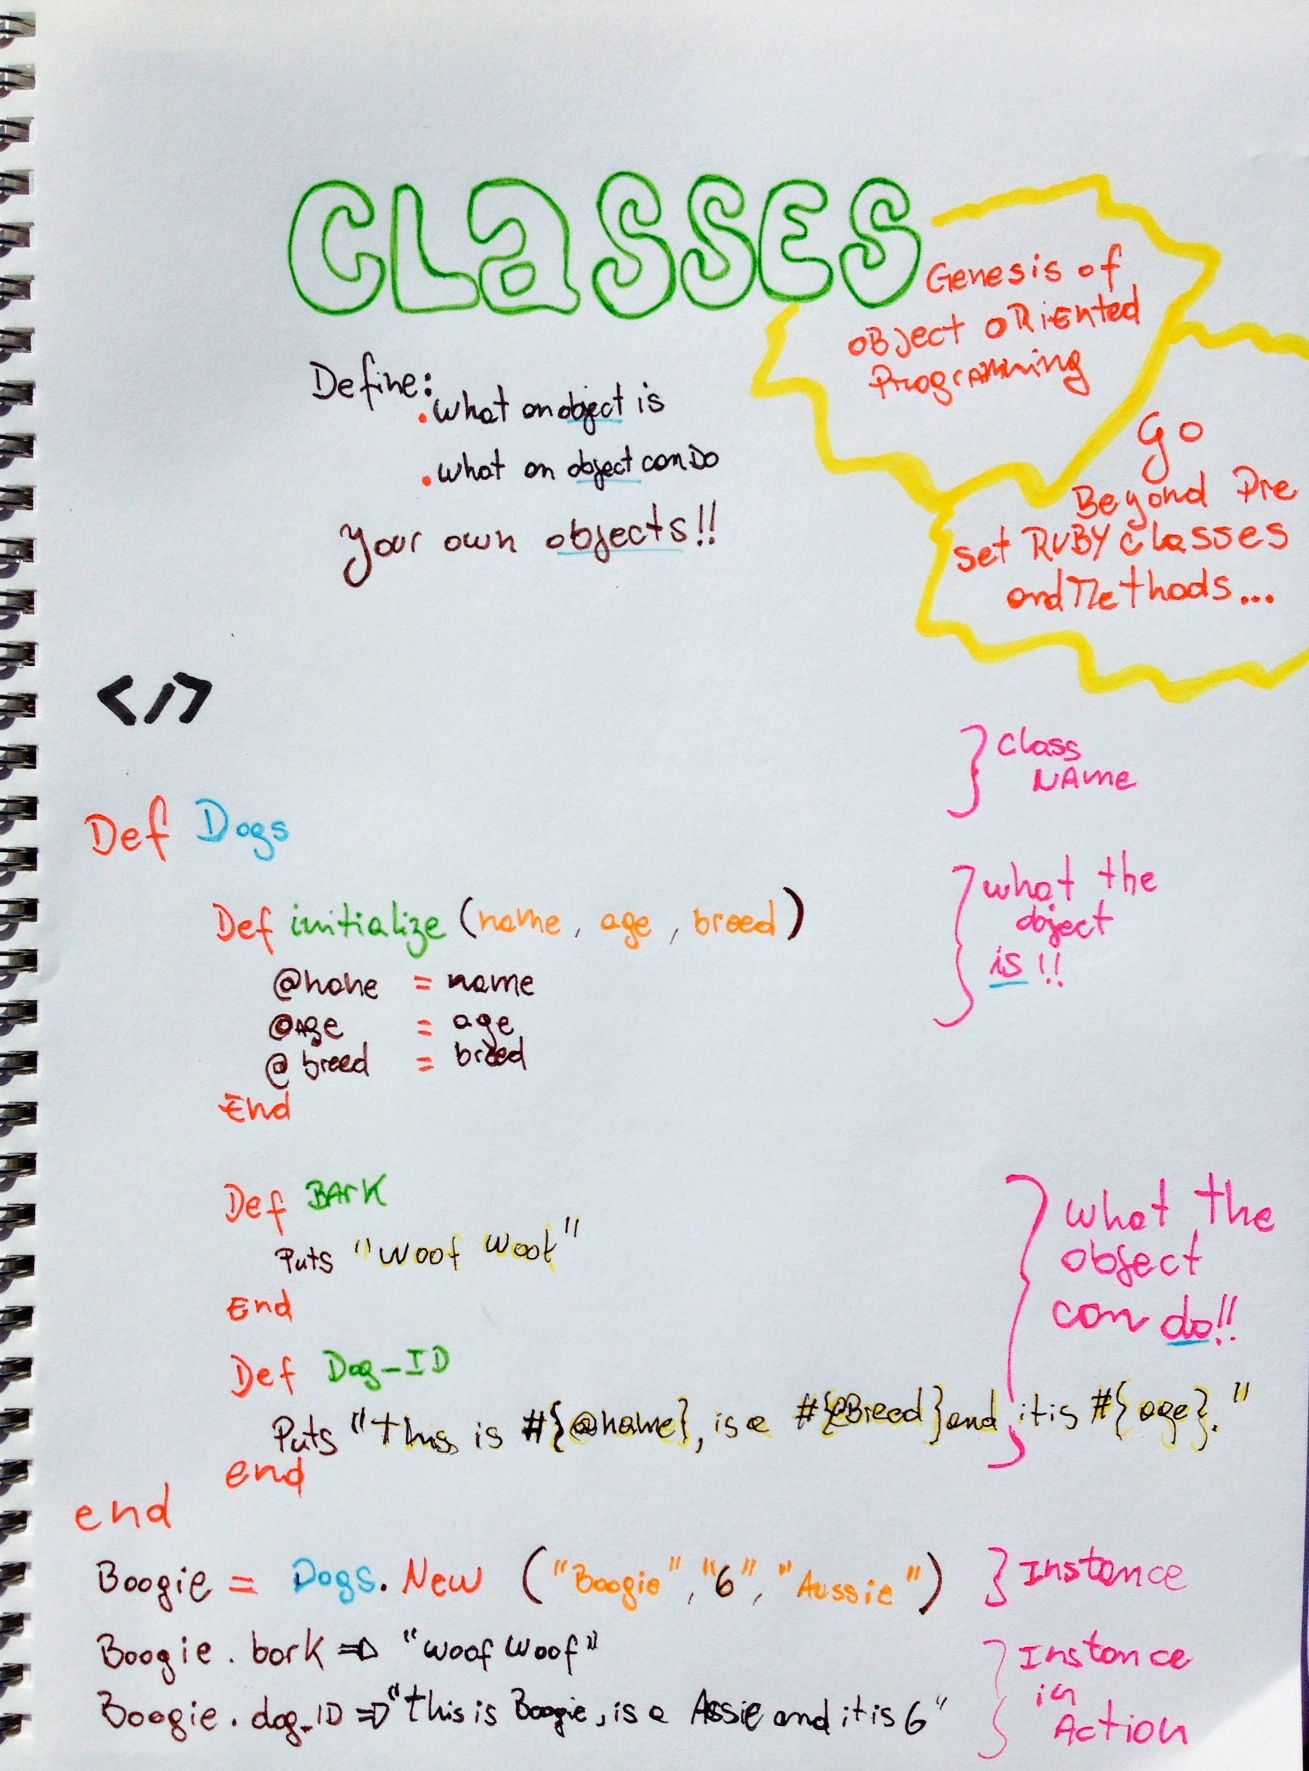 CLaSSES
Genesis of
oBJect oRiEnted
ProgrAMMing
Define:
.what an object is
.what an object can Do
your own objects!!
Go
Beyond Pre
set RUBY classes
and Methods...
</>
} class
NAme
Def Dogs
} what the
object
is!!
Def initialize (name, age, breed)
@name = name
@Age = age
@breed = breed
End
Def BArK
Puts "woof woof"
End
} what the
object
can do!!
Def Dog_ID
Puts "this is #{@name}, is a #{@Breed} and it is #{age}."
end
end
Boogie = Dogs.New ("Boogie","6","Aussie") } Instance
Boogie.bark => "woof woof"
Boogie.dog_ID => "this is Boogie, is a Assie and it is 6"
} Instance
in
Action